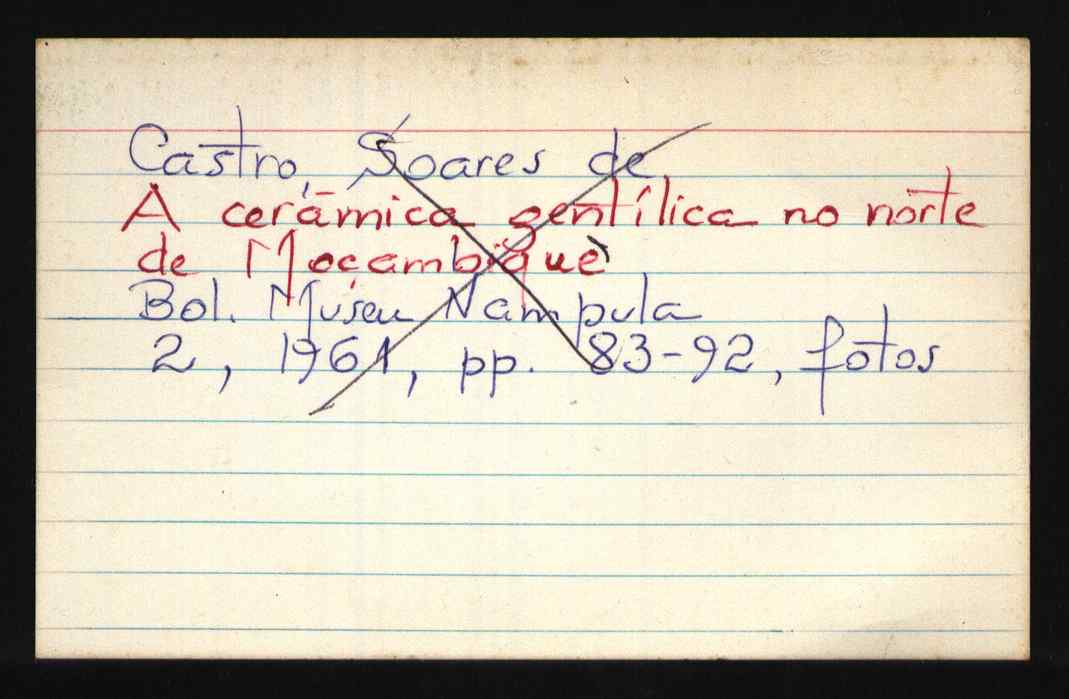 Castro, Soares de
A cerâmica gentílica no norte
de Moçambique
Bol. Museu Nampula
2, 1961, pp. 83-92, fotos